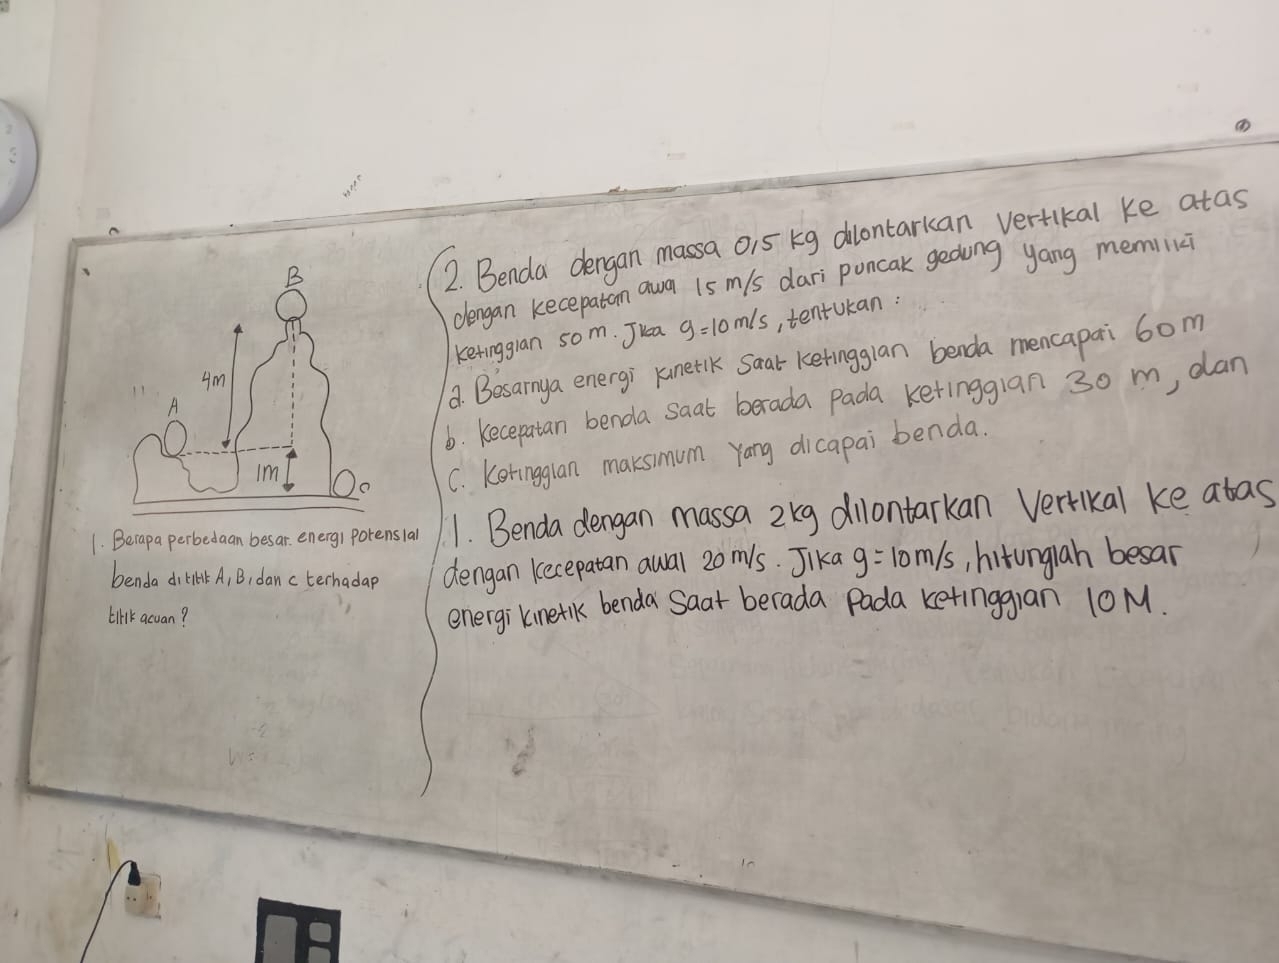 B
4m
A
1m
C
1. Berapa perbedaan besar energi potensial
benda di titik A, B, dan C terhadap
titik acuan?
2. Benda dengan massa 0,5 kg dilontarkan vertikal ke atas
dengan kecepatan awa 15 m/s dari puncak gedung yang memiliki
ketinggian 50 m. Jika g=10 m/s, tentukan :
a. Besarnya energi kinetik saat ketinggian benda mencapai 60 m
b. Kecepatan benda saat berada pada ketinggian 30 m, dan
C. Ketinggian maksimum yang dicapai benda.
1. Benda dengan massa 2 kg dilontarkan Vertikal ke atas
dengan kecepatan awal 20 m/s. Jika g = 10 m/s, hitunglah besar
energi kinetik benda saat berada pada ketinggian 10 M.